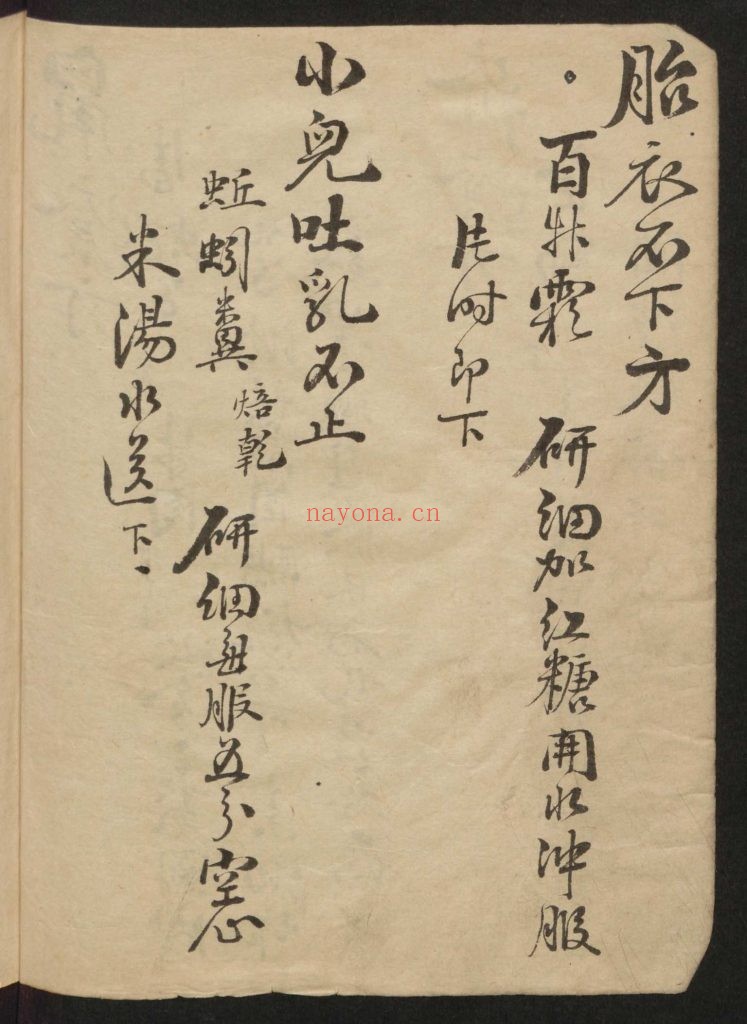 胎衣不下方
。百艸霜 研细加红糖開水沖服
片时即下
小兒吐乳不止
蚯蚓糞焙乾 研细每服五分空心
米湯水送下
nayona.cn